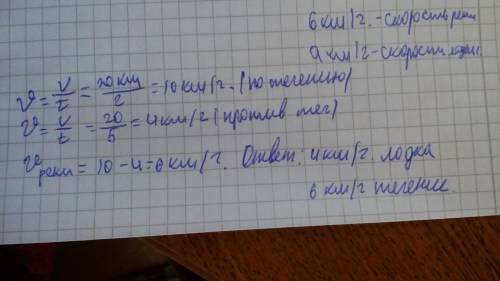 6 км/г. - скорость реки
4 км/г - скорость лодки
v = v/t = 20 км/2 = 10 км/г. (по течению)
v = v/t = 20/5 = 4 км/г (против теч)
v реки = 10 - 4 = 6 км/г. Ответ: 4 км/г. лодка
6 км/г течение.